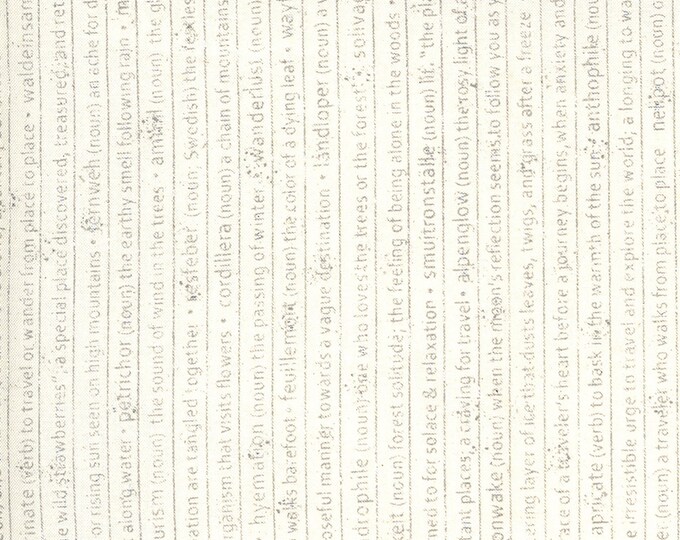 inate (verb) to travel or wander from place to place • waldeinsam
e wild strawberries"; a special place discovered, treasured, and ret
or rising sun seen on high mountains • fernweh (noun) an ache for d
along water • petrichor (noun) the earthy smell following rain •
urism (noun) the sound of wind in the trees • (noun) the gl
ation are tangled together • resfeber (noun; Swedish) the restles
rganism that visits flowers • cordillera (noun) a chain of mountains
hyemation (noun) the passing of winter • wanderlust (noun)
walks barefoot • feuillemort (noun) the color of a dying leaf • wayf
oseful manner towards a vague destination • landloper (noun) a v
drophile (noun) one who loves the trees or the forest • solivag
keit (noun) forest solitude; the feeling of being alone in the woods •
med to for solace & relaxation • smultronställe (noun) lit. "the pla
tant places; a craving for travel • alpenglow (noun) the rosy light of
onwake (noun) when the moon's reflection seems to follow you as y
ering layer of ice that dusts leaves, twigs, and grass after a freeze
ace of a traveler's heart before a journey begins, when anxiety and
apricate (verb) to bask in the warmth of the sun • anthophile (nou
e irresistible urge to travel and explore the world; a longing to wa
er (noun) a traveler who walks from place to place nelipot (noun) o